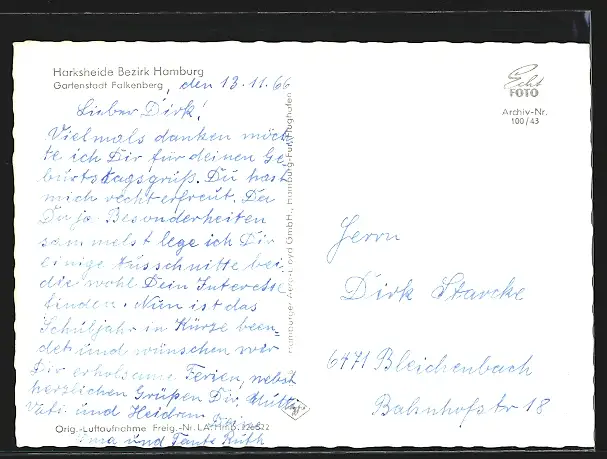 Harksheide Bezirk Hamburg
Gartenstadt Falkenberg, den 13.11.66
Lieber Dirk!
Vielmals danken möch
te ich Dir für deinen Ge
burtstagsgruß. Du hast
mich recht erfreut. Da
Du ja Besonderheiten
sammelst lege ich Dir
einige Ausschnitte bei
die wohl Dein Interesse
finden. Nun ist das
Schuljahr in Kürze been=
det und wünschen wir
Dir erholsame Ferien, nebst
herzlichen Grüßen Dir, Mutti,
Vati und Heidrun
Orig.-Luftaufnahme Freig.-Nr. LA Hbg.
Oma und Tante Ruth
Hamburger Aero-Lloyd GmbH., Hamburg-Fu Flughafen
Echt
FOTO
Archiv-Nr.
100/43
Herrn
Dirk Starcke
6471 Bleichenbach
Bahnhofstr 18